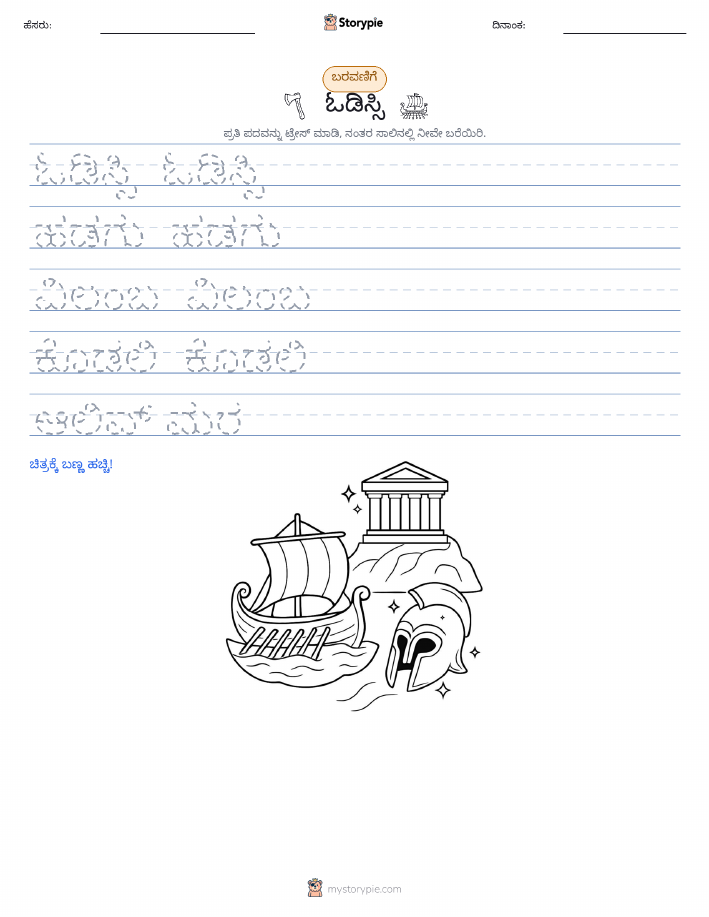 ಹೆಸರು: Storypie ದಿನಾಂಕ:
ಬರವಣಿಗೆ
ಓಡಿಸ್ಸಿ
ಪ್ರತಿ ಪದವನ್ನು ಟ್ರೇಸ್ ಮಾಡಿ, ನಂತರ ಸಾಲಿನಲ್ಲಿ ನೀವೇ ಬರೆಯಿರಿ.
ಓಡಿಸ್ಸಿ ಓಡಿಸ್ಸಿ
ಹಡಗು ಹಡಗು
ವಿಲಂಬ ವಿಲಂಬ
ಕೊಡಲಿ ಕೊಡಲಿ
ಆಲಿವ್ ಮರ
ಚಿತ್ರಕ್ಕೆ ಬಣ್ಣ ಹಚ್ಚಿ!
mystorypie.com